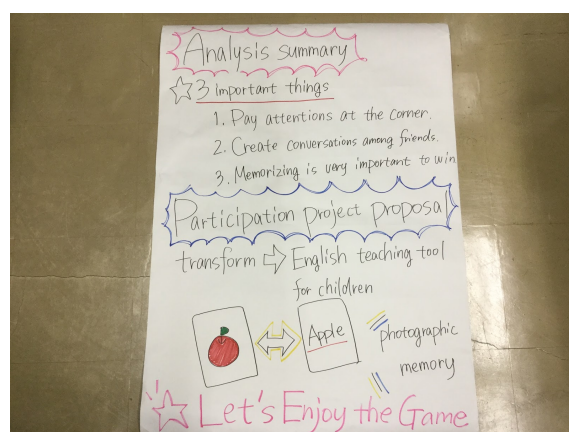 Analysis summary
3 important things
1. Pay attentions at the corner.
2. Create conversations among friends.
3. Memorizing is very important to win
Participation project proposal
transform ⇨ English teaching tool
for children
Apple
photographic
memory
Let's Enjoy the Game